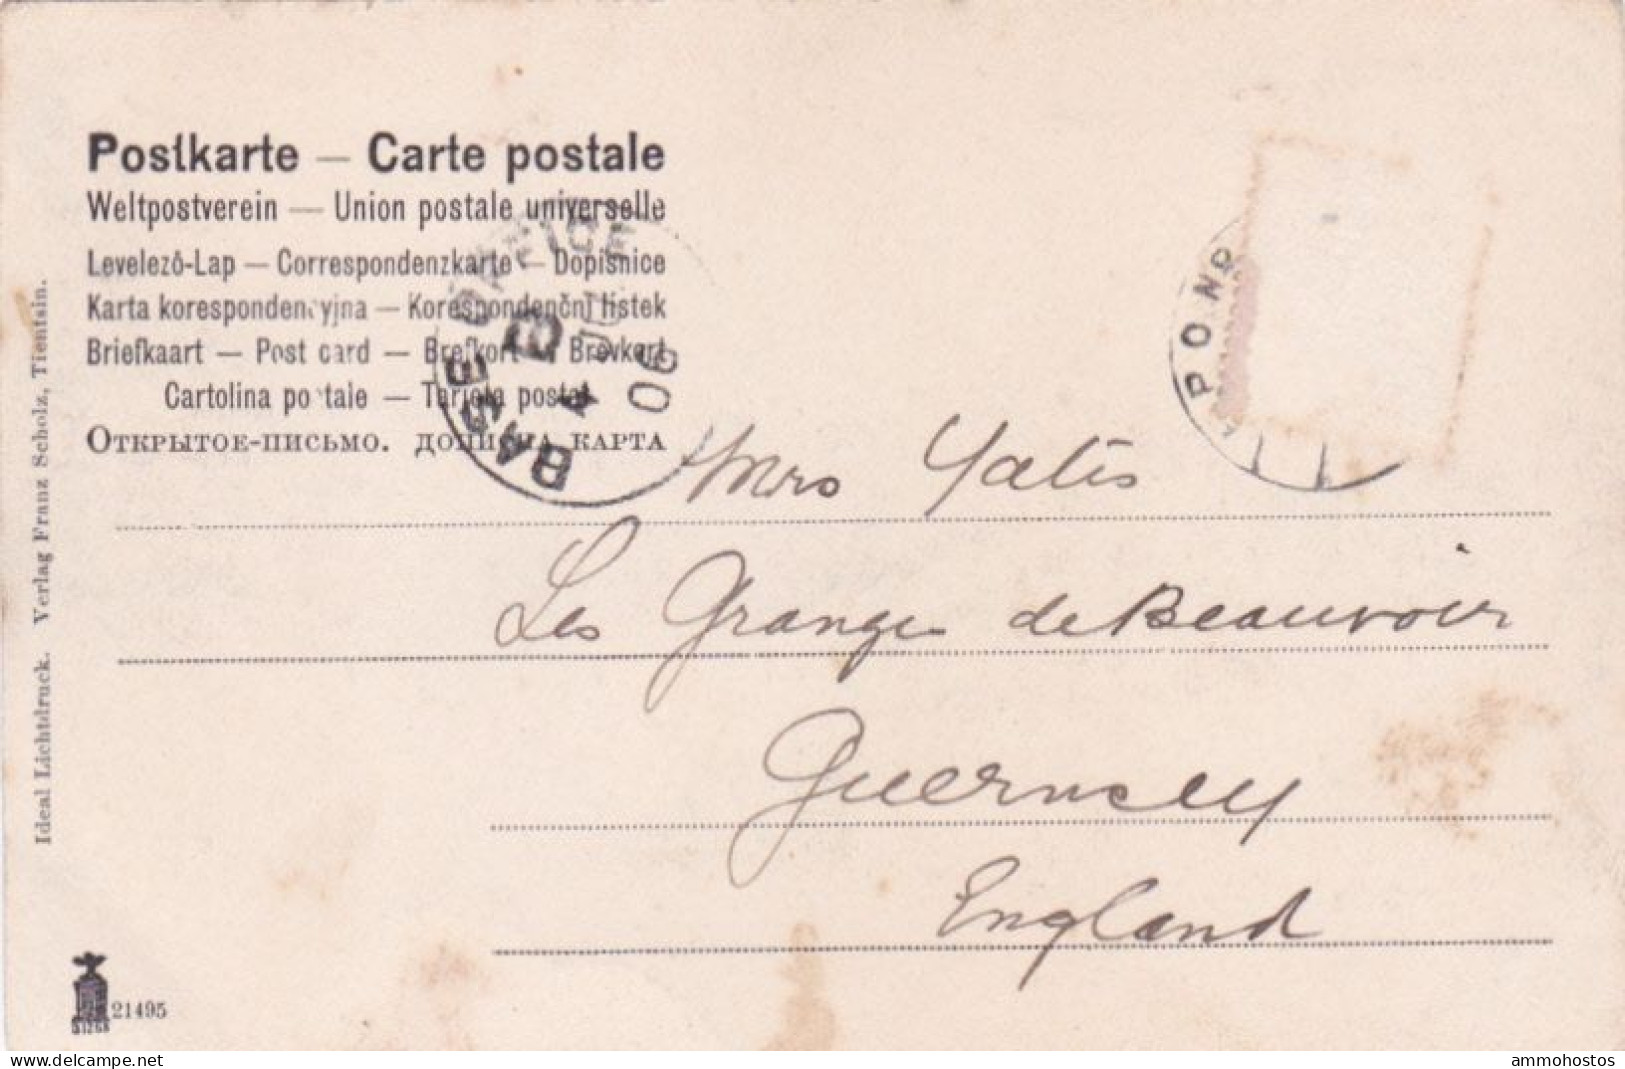 Postkarte — Carte postale
Weltpostverein — Union postale universelle
Levelező-Lap — Correspondenzkarte — Dopisnice
Karta korespondencyjna — Korespondenční listek
Briefkaart — Post card — Brefkort — Brevkort
Cartolina postale — Tarjeta postal
Открытое-письмо. дописна карта
BASE OFFICE
B
4 JU
06
POND
Mrs Yates
Les Granges de Beauvoir
Guernsey
England
Ideal Lichtdruck. Verlag Franz Scholz, Tientsin.
21495
www.delcampe.net
ammohostos